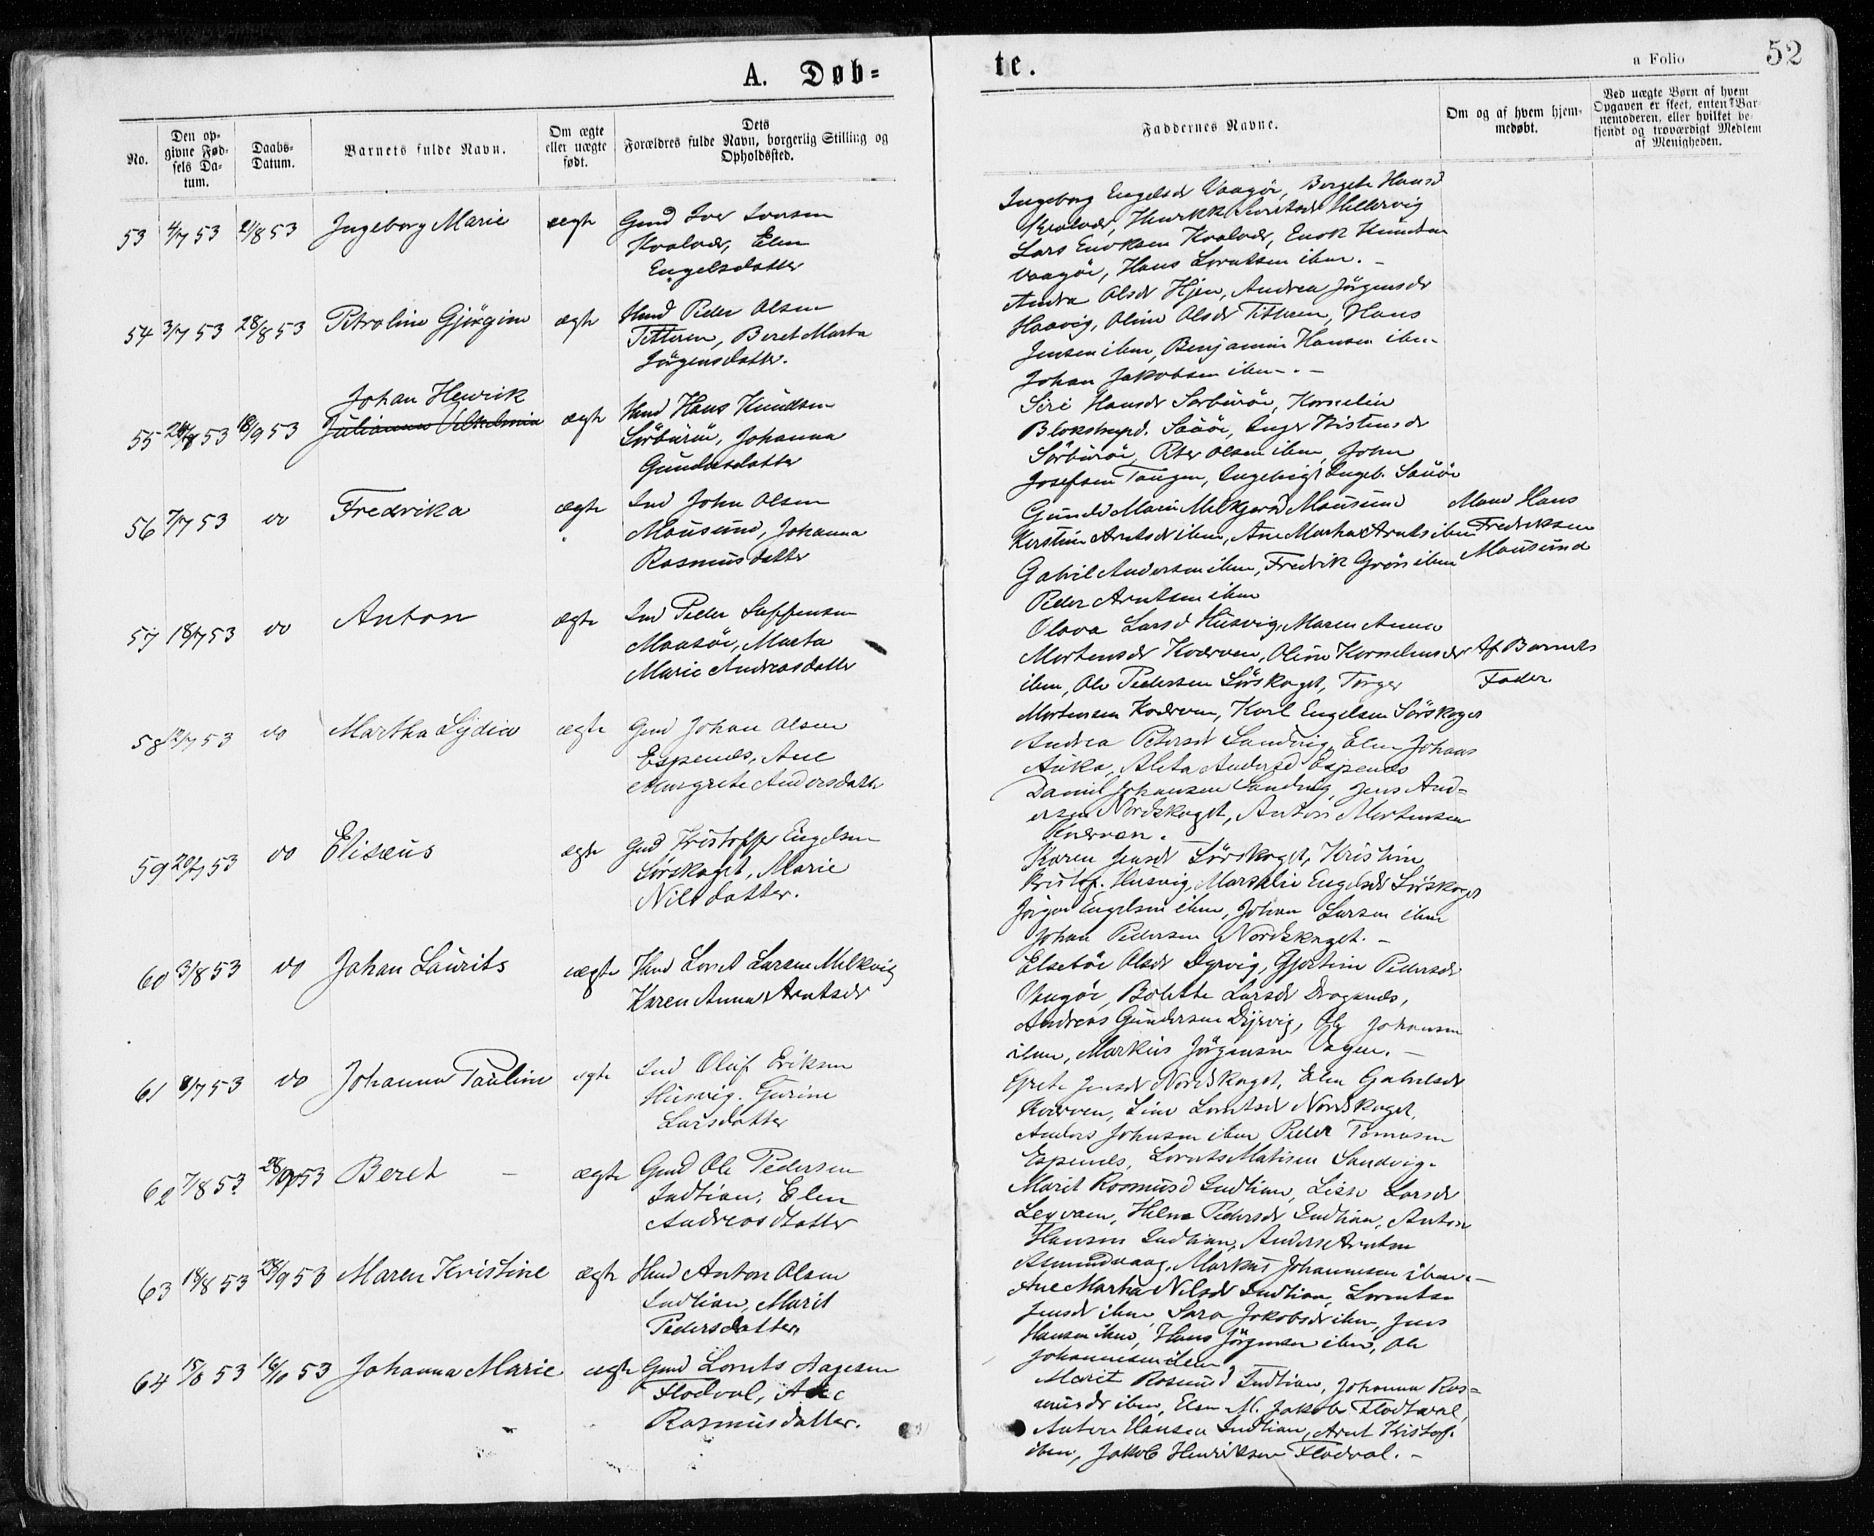 A. Døb=
te.
a Folio
52
No.
Den opgivne Fødsels Datum.
Daabs-Datum.
Barnets fulde Navn.
Om ægte eller uægte født.
Dets Forældres fulde Navn, borgerlig Stilling og Opholdssted.
Faddernes Navne.
Om og af hvem hjemmedøbt.
Ved uægte Børn af hvem Opgaven er skeet, enten Barnemoderen, eller hvilket bekjendt og troværdigt Medlem af Menigheden.
53 4/7 53 21/8 53 Ingeborg Marie ægte Gmd Iver Iversen
Kvalvær, Elen
Engelsdatter
Ingeborg Engelsd Vaagøe, Bergete Hansd
Lars Enoksen Kvalvær, Enok Knudsen
Vaagöe, Hans Lorntsen ibm. -
54 3/7 53 28/8 53 Petroline Gjørgine ægte Hmd Peder Olsen
Titteren, Beret Marta
Jörgensdatter.
Andrea Olsdr Hjen, Andrea Jörgensdr
Haavig, Oline Olsdr Titteren, Hans
Jensen ibm, Benjamin Hansen ibm
Johan Jakobsen ibm. -
Johan Henrik
55 24/8 53 18/9 53 Julianna Vilhelmina ægte Hmd Hans Knudsen
Sörburöe, Johanna
Gundersdatter
Siri Hansdr Sørburöe, Kornelia
Sørburöe, Peter Olsen ibm, John
Josefsen Tangen, Ingebrigt Ingeb. Sauöe
56 7/7 53 do Fredrika ægte Ind John Olsen
Mausund, Johanna
Rasmusdatter
Kerstine Arntsdr ibm, Ane Martha Arnts ibm
Gabriel Andersen ibm, Fredrik Grön ibm
Peder Arntsen ibm
Mand Hans
Fredriksen
Mausund
57 18/7 53 do Anton ægte Ind Peder Steffensen
Maasöe, Marta
Marie Andreasdatter
Olava Larsd Husvig, Maren Anna
Mortensdr Kverven, Oline Kornelius dr
ibm, Ole Pedersen Sörskaget, Torger
Mortensen Kverven, Karl Engelsen Sörskaget
Af Barnets
Fader
58 12/7 53 do Martha Lydia ægte Gmd Johan Olsen
Espenes, Ane
Margrete Andersdatter
Andrea Petersdr Sandvig, Elen Johans
Aunka, Aleta Andersd Espenes
Daniel Johansen Sandvig, Jens And=
ersen Nordskaget, Anton Mortensen
Kverven.
59 20/7 53 do Elisæus ægte Gmd Kristoffer Engelsen
Sörskaget, Marie
Nilsdatter.
Karen Jensdr Sörskaget, Kristine
Kristof. Husvig, Marthalie Engelsdr Sörskaget
Jörgen Engelsen ibm, Johan Larsen ibm
Johan Pedersen Nordskaget. -
60 3/8 53 do Johan Laurits uægte Hmd Lornt Larsen Melkvig
Karen Anna Arntsdr
Elseböe Olsdr Dyrvig, Gjertine Pedersdr
Vaagöe, Bolette Larsdr Dragsnes,
Andreas Gundersen Dyrvig, Ole Johansen
ibm, Markus Jörgensen Vagen. -
61 8/7 53 do Johanna Pauline ægte Ind Oluf Eriksen
Husvig. Gurine
Larsdatter
Grete Jensdr Nordskaget, Elen Gabrielsdr
Kverven, Line Lorntsdr Nordskaget,
Anders Johnsen ibm, Peder Tomasen
Espenes, Lornts Matisen Sandvig.
62 7/8 53 28/9 53 Beret - ægte Gmd Ole Pedersen
Indtian, Elen
Andreasdatter
Marit Rasmusd Indtian, Lisse Larsdr
Hansen Indtian, Anders Arntsen
Asmundvaag, Markus Johannesen ibm. -
63 18/8 53 28/9 53 Maren Kristine ægte Hmd Anton Olsen
Indtian, Marit
Pedersdatter
Ane Martha Nilsdr Indtian, Lorentse
Jensdr ibm, Sara Jakobsdr ibm, Jens
Hansen ibm, Hans Jörgensen ibm, Ole
Johannesen ibm
64 15/8 53 16/10 53 Johanna Marie ægte Gmd Lornts Aagesen
Flodval, Ane
Rasmusdatter.
Marit Rasmusd Indtian, Johanna Ras=
musdr ibm, Elen M. Jakobs Flodval,
Anton Hansen Indtian, Arnt Kristof.
ibm, Jakob Henriksen Flodval. -